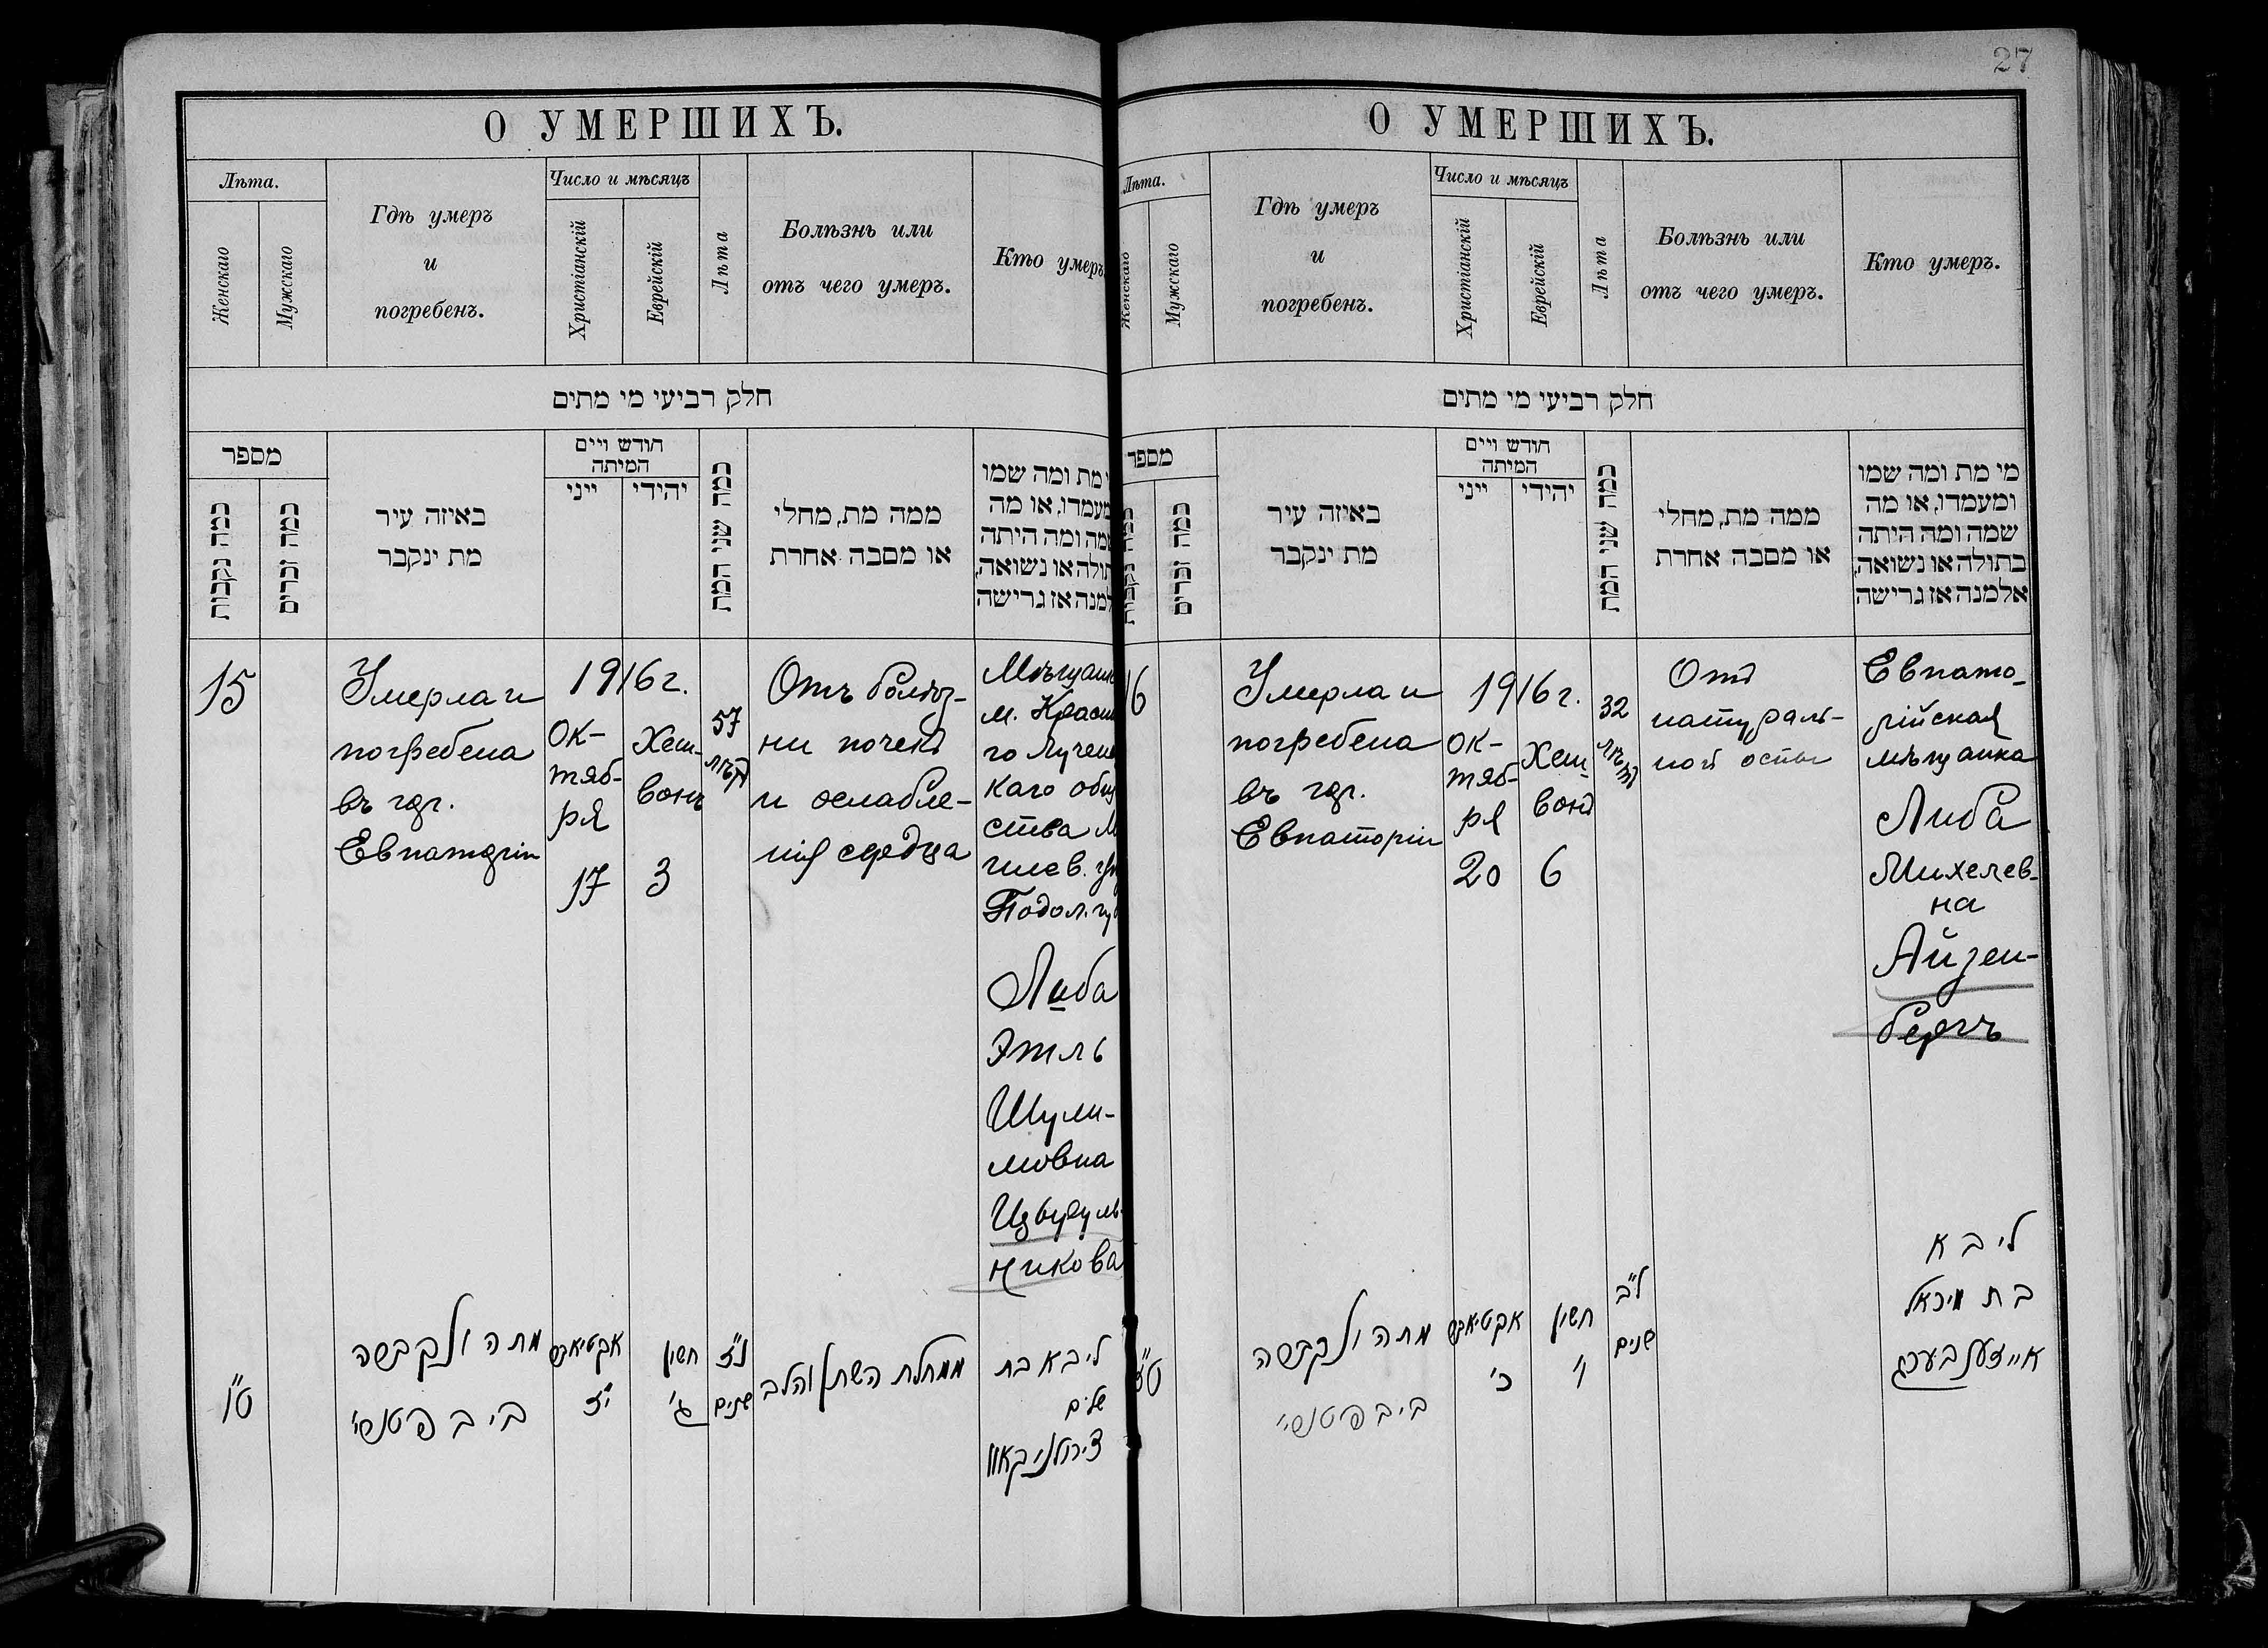 27
О УМЕРШИХЪ.
Лѣта.
Женскаго
Мужскаго
Гдѣ умеръ
и
погребенъ.
Число и мѣсяцъ
Христіанскій
Еврейскій
Лѣта
Болѣзнь или
отъ чего умеръ.
Кто умеръ
חלק רביעי מי מתים
מספר
כמה נקבות
כמה זכרים
באיזה עיר
מת ינקבר
חודש ויום
המיתה
ייני
יהודי
כמה שני המת
ממה מת, מחלי
או מסבה אחרת
י מת ומה שמו
מעמדו, או מה
שמה ומה היתה
תולה או נשואה,
למנה או גרישה
15
Умерла и
погребена
въ гор.
Евпаторіи
1916 г.
Ок-
тяб-
ря
17
Хеш-
вонъ
3
57
лѣтъ
Отъ болѣз-
ни почекъ
и ослабле-
нія сердца
Мѣщанк
м. Красн
го Лучен
каго общ
ства М
гилев. у
Подол. гу
Либа
Этль
Шули-
мовна
Цыруль-
никова
ט"ו
מתה ונקברה
אקטיאבר
י"ז
חשון
ג'
נ"ז
שנים
ממחלת השתן והלב
ליבא בת
שלום
צירולניקאוו
О УМЕРШИХЪ.
Лѣта.
Женскаго
Мужскаго
Гдѣ умеръ
и
погребенъ.
Число и мѣсяцъ
Христіанскій
Еврейскій
Лѣта
Болѣзнь или
отъ чего умеръ.
Кто умеръ.
חלק רביעי מי מתים
מספר
כמה נקבות
כמה זכרים
באיזה עיר
מת ינקבר
חודש ויום
המיתה
ייני
יהודי
כמה שני המת
ממה מת, מחלי
או מסבה אחרת
מי מת ומה שמו
ומעמדו, או מה
שמה ומה היתה
בתולה או נשואה,
אלמנה או גרישה
16
Умерла и
погребена
въ гор.
Евпаторіи
1916 г.
Ок-
тяб-
ря
20
Хеш-
вонъ
6
32
лѣтъ
Отъ
натураль-
ной оспы
Евпато-
рійская
мѣщанка
Либа
Михелев-
на
Айзен-
бергъ
ט"ז
מתה ונקברה
אקטיאבר
כ'
חשון
ו'
ל"ב
שנים
ליבא
בת מיכאל
אייזענבערג